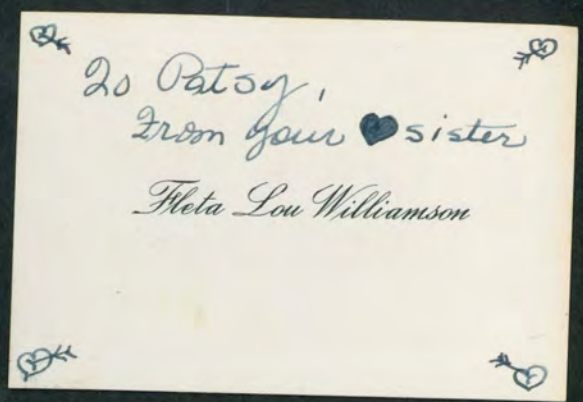 To Patsy,
From your ♥ sister
Fleta Lou Williamson